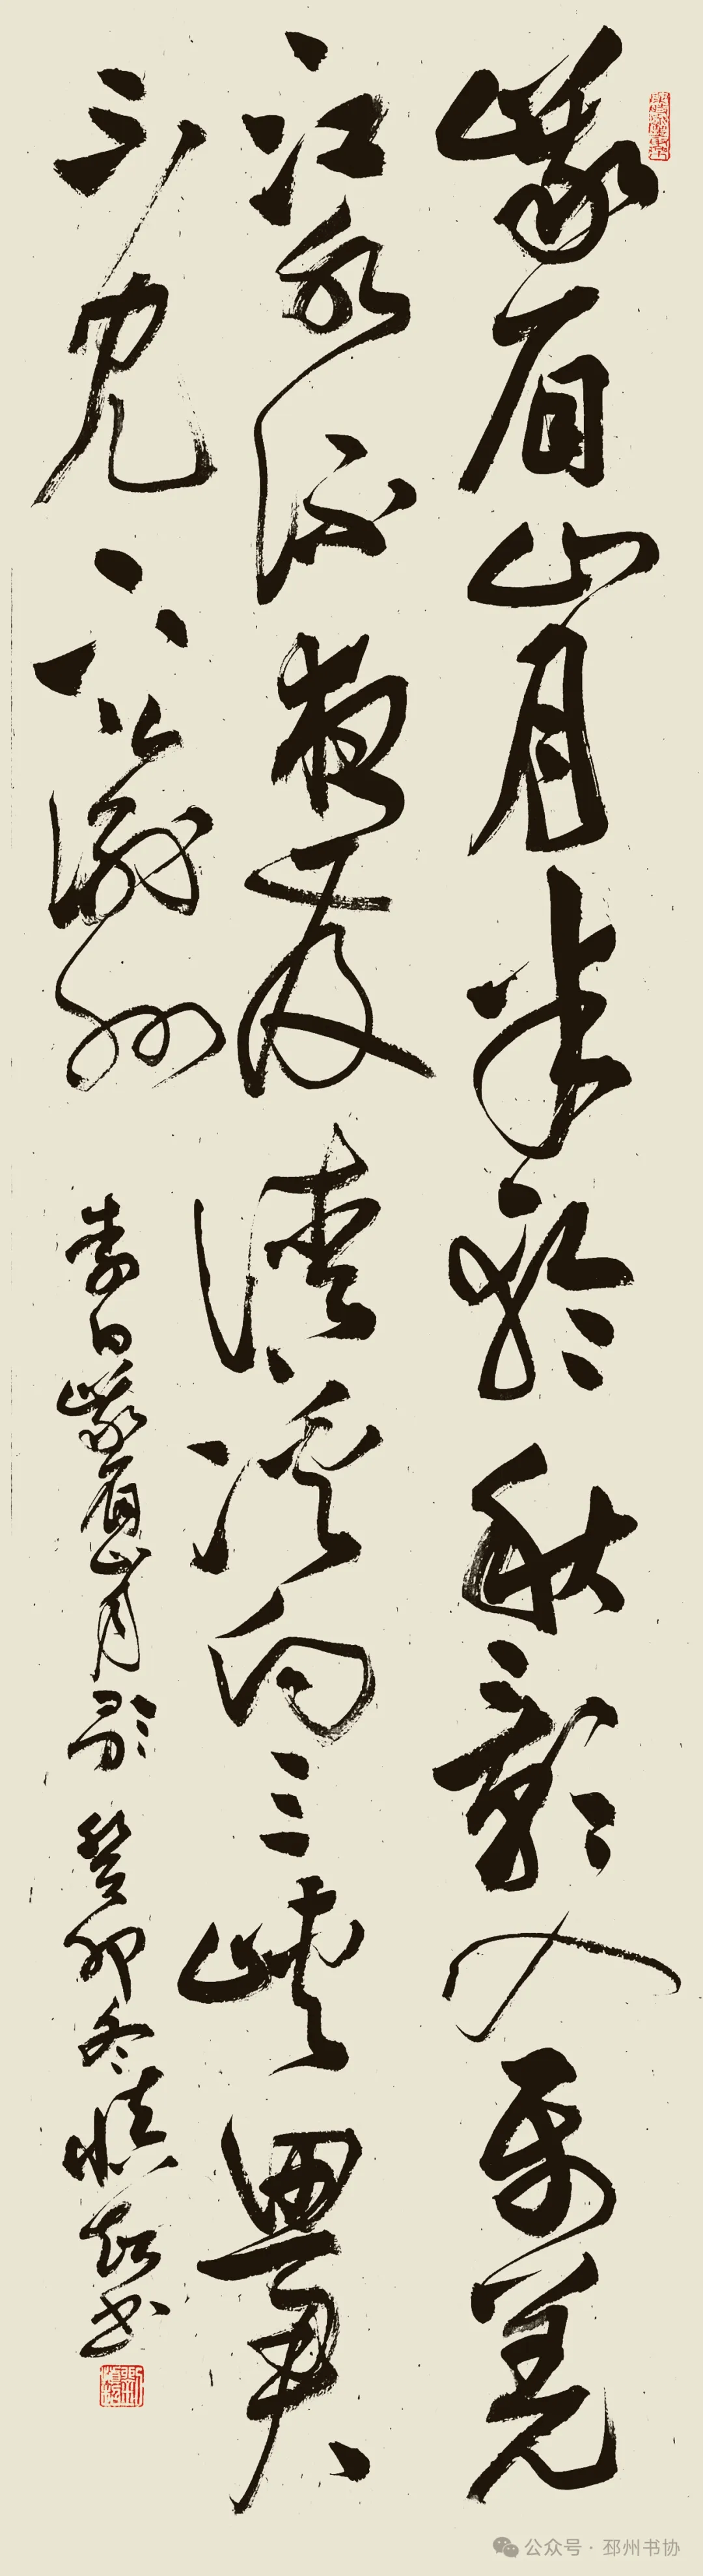 峨眉山月半輪秋影入平羌
江水流夜發清溪向三峽思君
不見下渝州 李白峨眉山月歌 癸卯冬慎超书
公众号·邳州书协